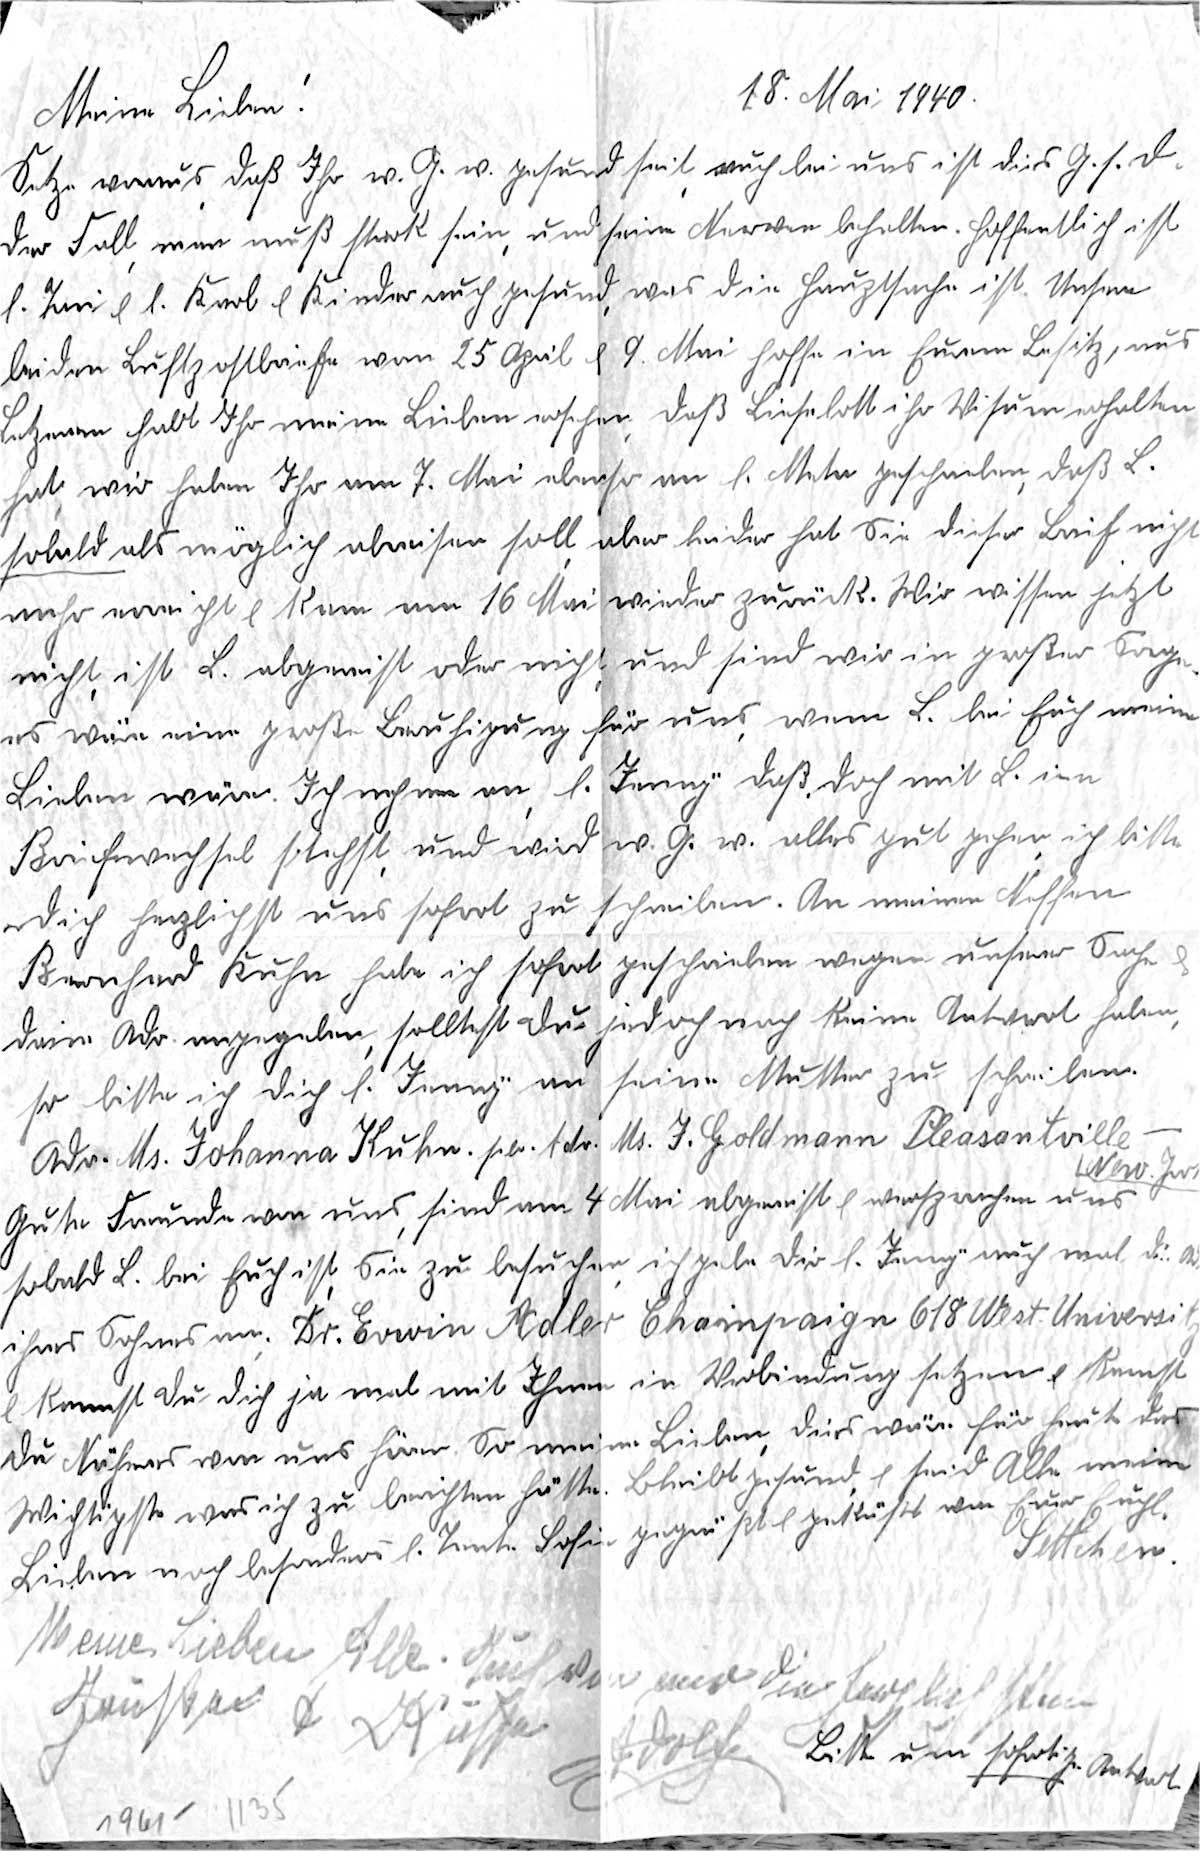 18. Mai 1940.
Meine Lieben!
Setze voraus, daß Ihr w. G. w. gesund seit, auch bei uns ist dies G. s. D.
der Fall, man muß stark sein, und seine Nerven behalten. Hoffentlich ist
l. & l. Karl & Kinder auch gesund, was die Hauptsache ist. Unsere
beiden Luftpostbriefe von 25 April & 9. Mai hoffe in Eurem Besitz, aus
Letzerem habt Ihr meine Lieben ersehen, daß Lieselott ihr Visum erhalten
hat, wir haben Ihr am 7. Mai ebenso an l. Meta geschrieben, daß L.
sobald als möglich abreisen soll, aber leider hat Sie dieser Brief nicht
mehr erreicht & kam am 16 Mai wieder zurück. Wir wissen jetzt
nicht, ist L. abgereist oder nicht, und sind wir in großer Sorge.
es wäre eine große Beruhigung für uns, wenn L. bei Euch meine
Lieben wäre. Ich nehme an, l. Jenny daß doch mit L. in
Briefwechsel stehst, und wird w. G. w. alles gut gehen, ich bitte
dich herzlichst uns sofort zu schreiben. An meinen Neffen
Bernhard Kuhn habe ich sofort geschrieben wegen unserer Sache &
deine Adr. angegeben, solltest du jedoch noch keine Antwort haben,
so bitte ich dich l. Jenny an seine Mutter zu schreiben.
Adr. Ms. Johanna Kuhn. Adr. Ms. J. Goldmann Pleasantville —
New. Jer.
Gute Freunde von uns, sind am 4 Mai abgereist & versprachen uns
sobald L. bei Euch ist, Sie zu besuchen, ich gebe dir l. Jenny auch mal die
ihres Sohnes an. Dr. Erwin Adler Champaign 618 West. University
& kannst du dich ja mal mit Ihnen in Verbindung setzen & kannst
du Näheres von uns hören. So meine Lieben, dies wäre für heute das
Wichtigste was ich zu berichten hätte. Bleibt gesund, & seid Alle meine
Lieben noch besonders l. Tante Sofie gegrüßt & geküßt von Eurer Euch l.
Settchen.
Meine Lieben Alle. Auch von mir die herzlichsten
Grüße & Küsse
Adolf
Bitte um sofortige Antwort
1941 1135